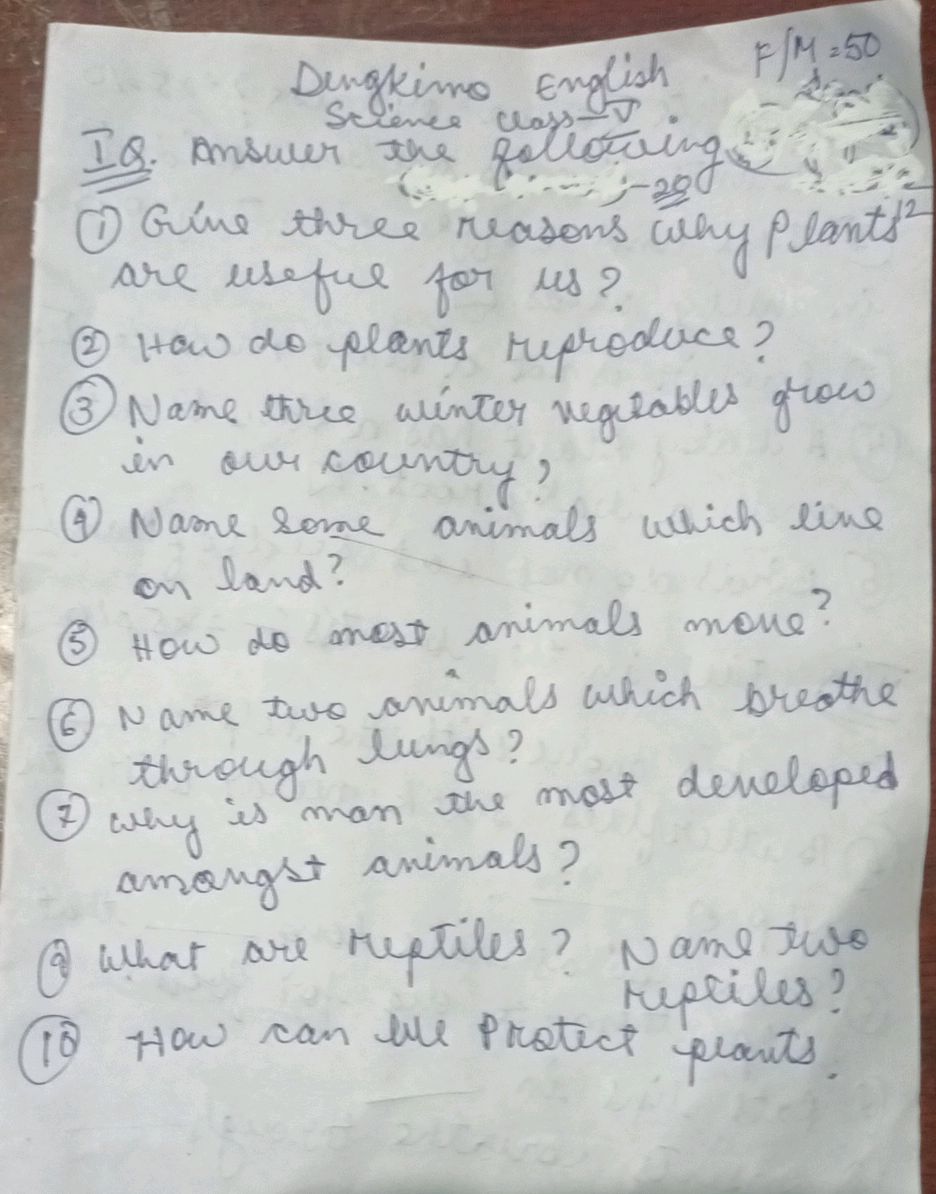 F/M = 50
Dingkimo English
Science Class - V
I Q. Answer the following
- 20
① Give three reasons why plants 2
are useful for us?
② How do plants reproduce?
③ Name three winter vegetables grow
in our country?
④ Name Some animals which live
on land?
⑤ How do most animals move?
⑥ Name two animals which breathe
through lungs?
⑦ Why is man the most developed
amongst animals?
⑨ What are reptiles? Name two
reptiles?
⑩ How can we Protect plants.